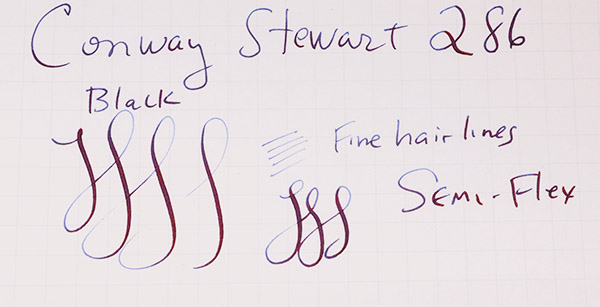 Conway Stewart 286
Black
Fine hair lines
Semi-Flex